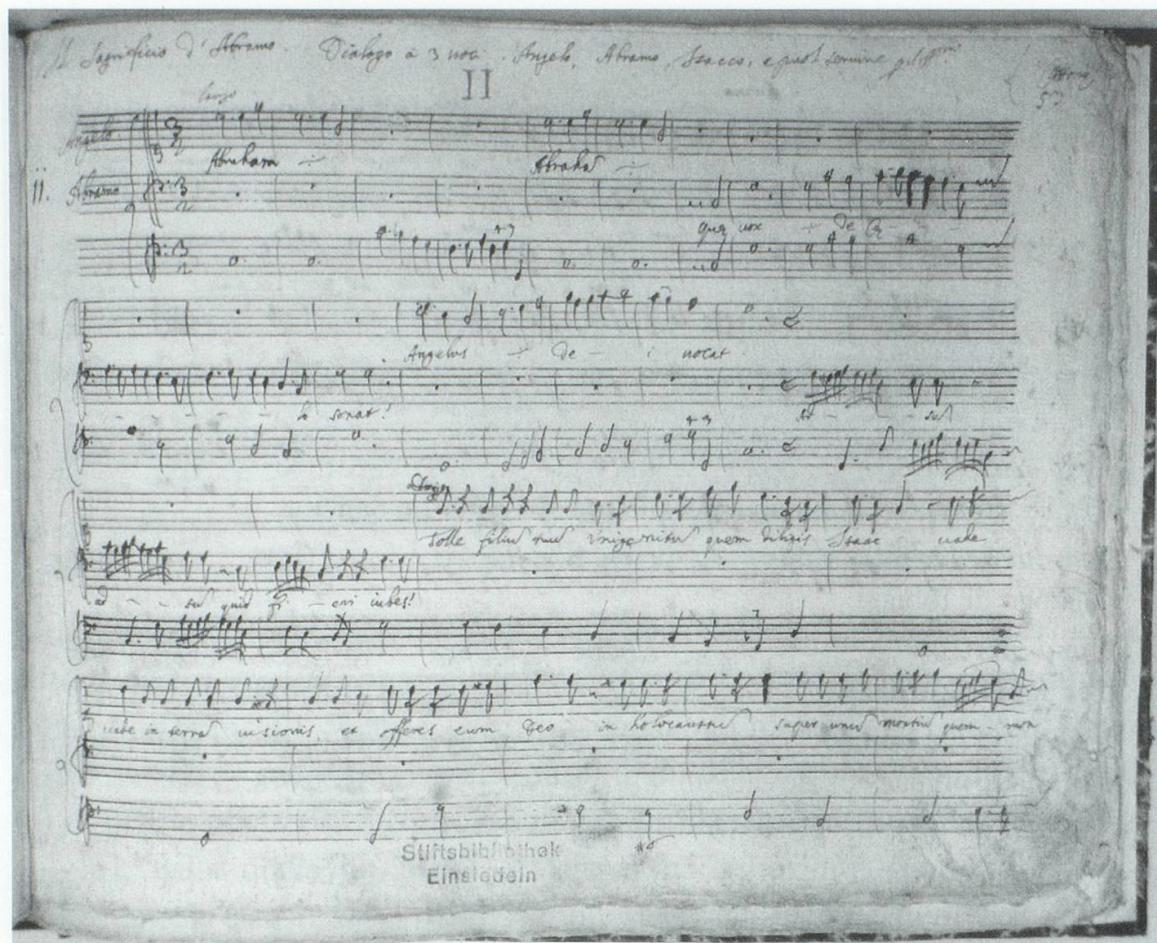 Il Sagrificio d'Abramo. Dialogo a 3 uoci. Angelo, Abramo, Isacco, e
II
largo
Angelo
Abraham Abrahã
ii. Abramo
quæ uox de
Angelus De i uocat
lo sonat!
ad sũ
Tolle filiũ tuũ unigenitũ quem diligis Isaac uade
ad sũ quid fi eri iubes!
uade in terrã uisionis, et offeres eum Deo in holocaustũ super unũ montiũ quem mon
Stiftsbibliothek
Einsiedeln